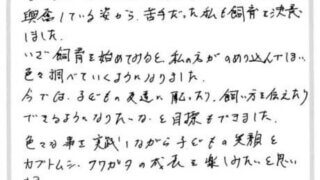 興奮している姿から、苦手だった私も飼育を決意
しました。
いざ飼育を始めてみると、私の方がのめり込んでしまい
色々調べていくようになりました。
今では、子どもの友達に配ったり、飼い方を伝えたり
できるようになりたいな、を目標もできました。
色々な事を実践しながら子どもの笑顔と
カブトムシ・クワガタの成長を楽しみたいと思い